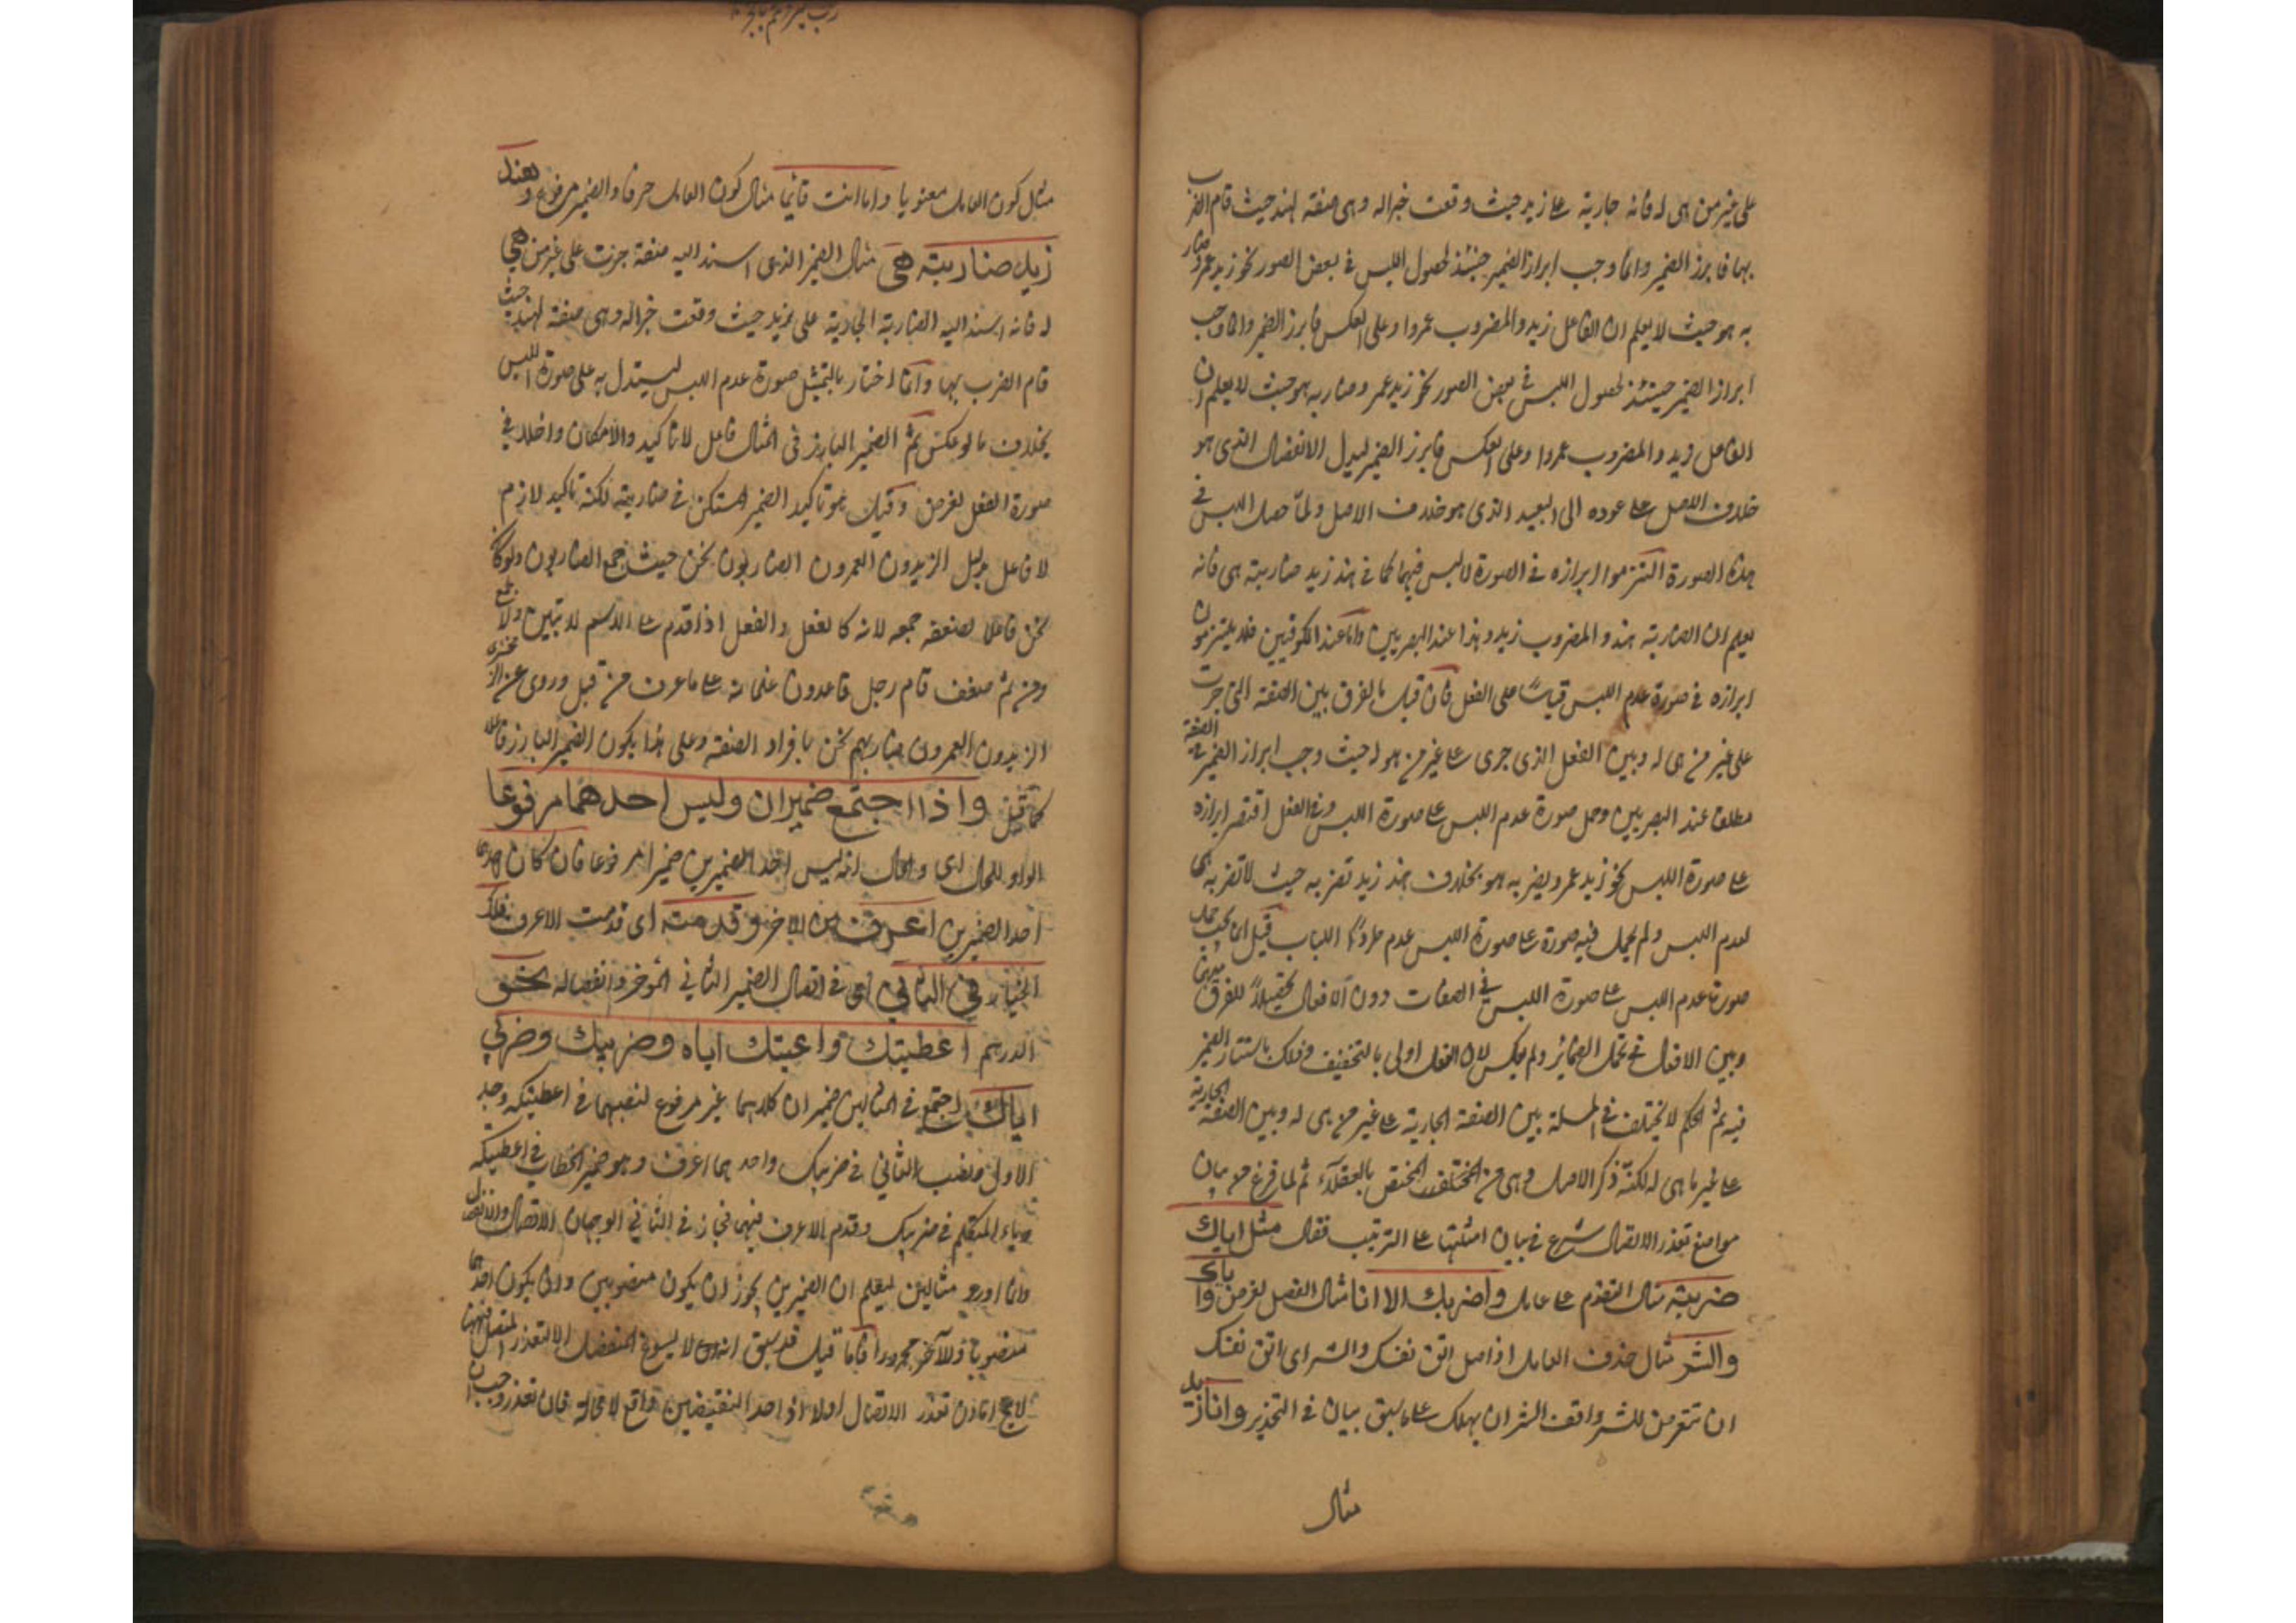 على غير من هى له فانه جارية على زيد حيث وقعت خبرا له وهى صفة لهند حيث قام الضرب
بها فابرز الضمير وانما وجب ابراز الضمير حينئذ لحصول اللبس فى بعض الصور نحو زيد عمرو ضار
به هو حيث لا يعلم ان الفاعل زيد والمضروب عمروا وعلى العكس فابرز الضمير وانما وجب
ابراز الضمير حينئذ لحصول اللبس فى بعض الصور نحو زيد عمر وضاربه هو حيث لا يعلم ان
الفاعل زيد والمضروب عمروا وعلى العكس فابرز الضمير ليدل الانفصال الذى هو
خلاف الاصل على عوده الى البعيد الذى هو خلاف الاصل ولما حصل اللبس فى
هذه الصورة التزموا ابرازه فى الصورة لا لبس فيهما كما فى هند زيد ضاربته هى فانه
يعلم ان الضاربة هند والمضروب زيد وهذا عند البصريين واما عند الكوفيين فلا يلتزمون
ابرازه فى صورة عدم اللبس قياسا على الفعل فان قيل ما الفرق بين الصفة التى جرت
على غير من هى له وبين الفعل الذى جرى على غير من هو له حيث وجب ابراز الضمير فى الصفة
مطلقا عند البصريين وحمل صورة عدم اللبس على صورة اللبس وفى الفعل اقتصر ابرازه
على صورة اللبس نحو زيد عمرو يضربه هو بخلاف هند زيد تضربه حيث لا تضربه هى
لعدم اللبس ولم يحمل فيه صورة على صورة اللبس عدم طردا للباب قيل انما يجب حمل
صورة عدم اللبس على صورة اللبس فى الصفات دون الافعال تحقيقا للفرق بينها
وبين الافعال فى تحمل الضمائر ولم يعكس لان الفعل اولى بالتخفيف وذلك باستتار الضمير
فيه ثم الحكم لا يختلف فى المسئلة بين الصفة الجارية على غير من هى له وبين الصفة الجارية
على غير ما هى له لكنه ذكر الاصل وهى من المختلف المختص بالعقلاء ثم لما فرغ من بيان
مواضع تعذر الاتصال شرع فى بيان امثلتها على الترتيب فقال مثل اياك
ضربت مثال التقدم على عامله وما ضربك الا انا مثال الفصل لغرض واياك
والشر مثال حذف العامل اذ اصله اتق نفسك والشر اى اتق نفسك
ان تتعرض للشر واتق الشر ان يهلك على ما سبق بيان فى التحذير وانا زيد
مثال
مثل كون العامل معنويا وما انت قائما مثال كون العامل حرفا والضمير مرفوع وهند
زيد ضاربته هى مثال الضمير الذى اسند اليه صفة جرت على غير من هى
له فانه اسند اليه الضاربة الجارية على زيد حيث وقعت خبرا له وهى صفة لهند حيث
قام الضرب بها وانما اختار بالتمثيل صورة عدم اللبس ليستدل به على صورة اللبس
بخلاف ما لو عكس ثم الضمير البارز فى المثال فاعل لا تاكيد والا لكان داخلا فى
صورة الفصل لغرض وقيل هو تاكيد الضمير المستكن فى ضاربته لكنه تاكيد لازم
لا فاعل بدليل الزيدون العمرون الضاربون نحن حيث جمع الضاربون ولو كان
نحن فاعلا لضعف جمعه لانه كالفعل والفعل اذا قدم على الاسم لا يثنى ولا يجمع
ومن ثم ضعف قام رجل قاعدون غلمانه على ما عرف من قبل وروى عن الزمخشرى
الزيدون العمرون ضاربهم نحن بافراد الصفة وعلى هذا يكون الضمير البارز فاعلا
كما قيل واذا اجتمع ضميران وليس احدهما مرفوعا
الواو للحال اى والحال انه ليس احد الضميرين ضميرا مرفوعا فان كان احدهما
احد الضميرين اعرف من الاخر وقدمته اى قدمت الاعرف فلك
الخيار فى الثانى اى فى اتصال الضمير الثانى المؤخر وانفصاله نحو
الدرهم اعطيتك واعطيتك اياه وضربيك وضربى
اياك اجتمع فى المثالين ضميران كلاهما غير مرفوع لنصبهما فى اعطيتكه وجر
الاول ونصب الثانى فى ضربيك واحدهما اعرف وهو ضمير الخطاب فى اعطيتكه
وياء المتكلم فى ضربيك وقدم الاعرف فيهما فجاز فى الثانى الوجهان الاتصال والانفصال
وانما اورد مثالين ليعلم ان الضميرين يجوز ان يكون منصوبين وان يكون احدهما
منصوبا والآخر مجرورا فاما قيل قد سبق انه لا يسوغ المنفصل الا لتعذر المتصل فههنا
لا يخ اما ان تعذر الاتصال اولا اذ احد النقيضين واقع لا محالة فان تعذر وجب ان